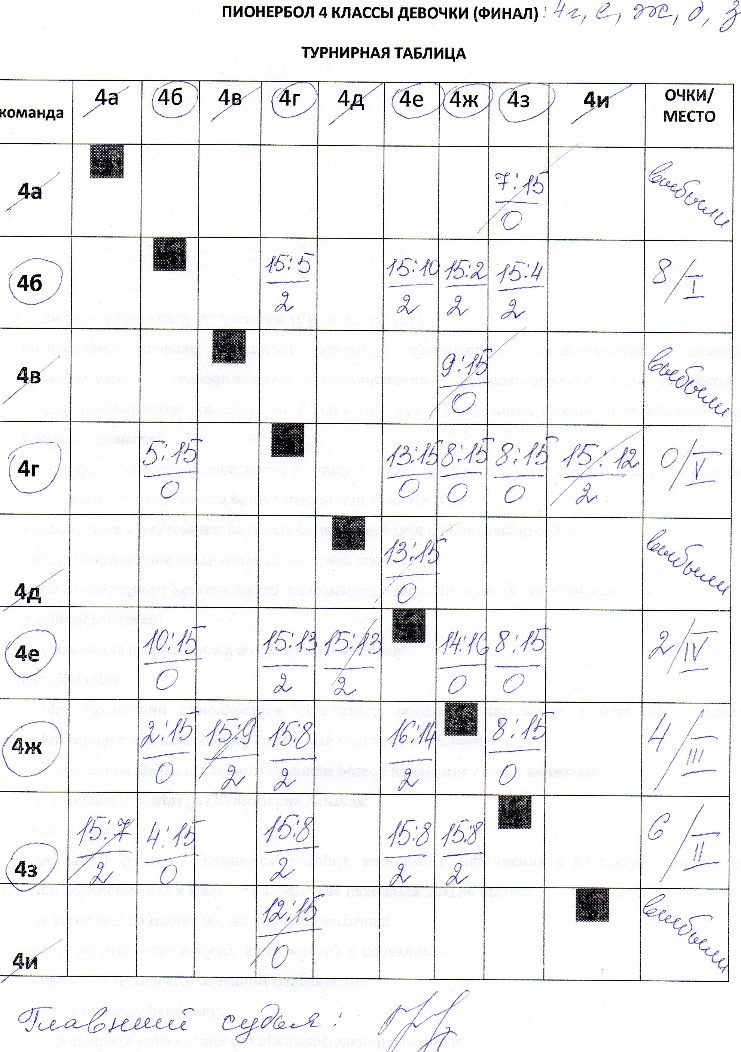 ПИОНЕРБОЛ 4 КЛАССЫ ДЕВОЧКИ (ФИНАЛ) : 4г, е, ж, б, з
ТУРНИРНАЯ ТАБЛИЦА
команда 4а 4б 4в 4г 4д 4е 4ж 4з 4и ОЧКИ/ МЕСТО
4а 7:15 0 выбыли
4б 15:5 2 15:10 2 15:2 2 15:4 2 8/I
4в 9:15 0 выбыли
4г 5:15 0 13:15 0 8:15 0 8:15 0 15:12 2 0/V
4д 13:15 0 выбыли
4е 10:15 0 15:13 2 15:12 2 14:16 0 8:15 0 2/IV
4ж 2:15 0 15:9 2 15:8 2 16:14 2 8:15 0 4/III
4з 15:7 2 4:15 0 15:8 2 15:8 2 15:8 2 6/II
4и 12:15 0 выбыли
Главный судья: